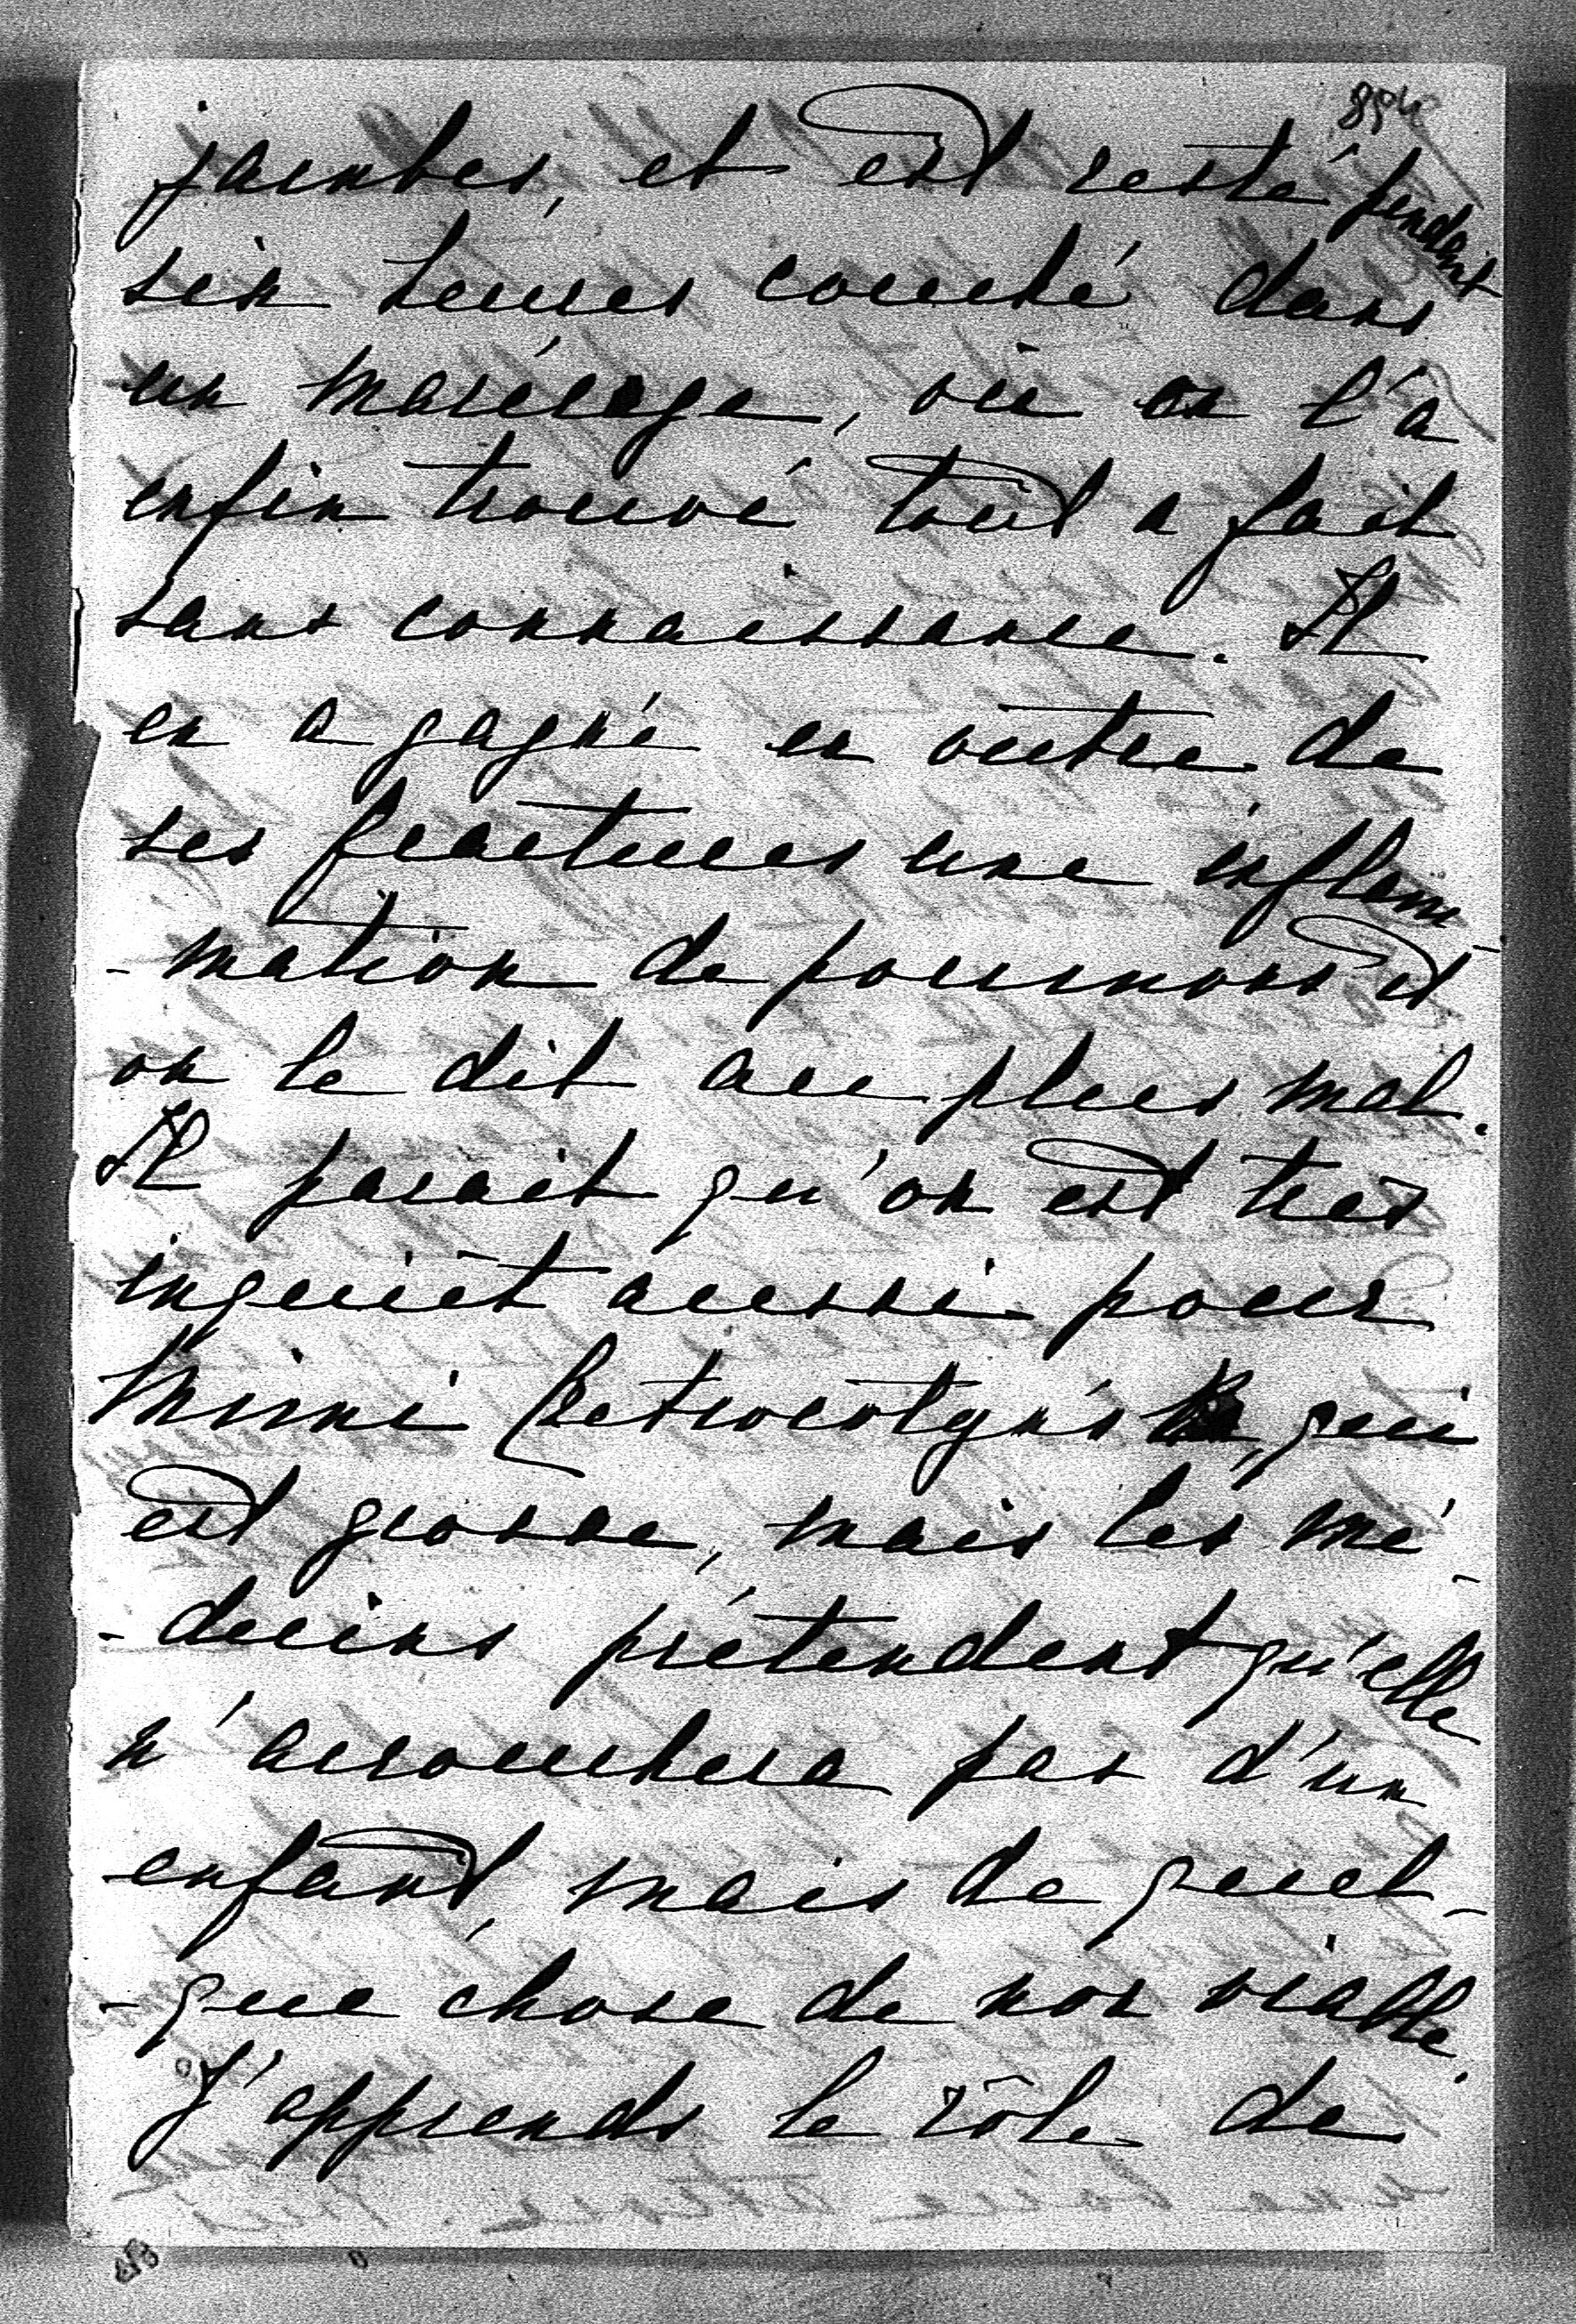 jambes, et est resté pendant
six heures couché dans
un marécage, où on l'a
enfin trouvé tout a fait
sans connaissance. Il
en a gagné en outre de
ses fractures une inflam-
-mation de poumons et
on le dit au plus mal.
Il parait qu'on est très
inquiet aussi pour
Mimi qui
est grosse, mais les mé-
-decins prétendent qu'elle
n'accouchera pas d'un
enfant, mais de quel-
-que chose de non viable.
J'apprends le rôle de